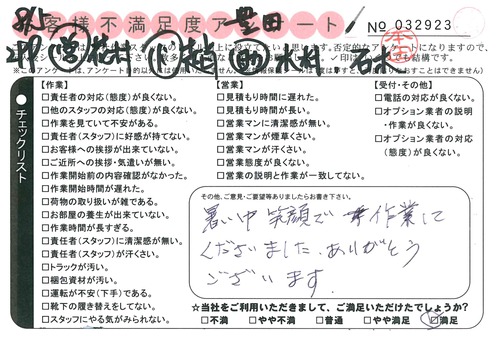 お客様不満足度アンケート
豊田
№ 032923
本
チェックリスト
【作業】
□責任者の対応(態度)が良くない。
□他のスタッフの対応(態度)が良くない。
□作業を見ていて不安がある。
□責任者(スタッフ)に好感が持てない。
□お客様への挨拶が出来ていない。
□ご近所への挨拶・気遣いが無い。
□作業開始前の内容確認がなかった。
□作業開始時間が遅れた。
□荷物の取り扱いが雑である。
□お部屋の養生が出来ていない。
□作業時間が長すぎる。
□責任者(スタッフ)に清潔感が無い。
□責任者(スタッフ)が汗くさい。
□トラックが汚い。
□梱包資材が汚い。
□運転が不安(下手)である。
□靴下の履き替えをしてない。
□スタッフにやる気がみられない。
【営業】
□見積もり時間に遅れた。
□見積もり時間が長い。
□営業マンに清潔感が無い。
□営業マンが煙草くさい。
□営業マンが汗くさい。
□営業態度が良くない。
□営業の説明と作業が一致してない。
【受付・その他】
□電話の対応が良くない。
□オプション業者の説明
・作業が良くない。
□オプション業者の対応
(態度)が良くない。
その他、ご意見・ご要望等ありましたらお書き下さい。
暑い中笑顔で作業して
くださいました。ありがとう
ございます。
☆当社をご利用いただきまして、ご満足いただけたでしょうか?
□不満 □やや不満 □普通 □やや満足 □満足